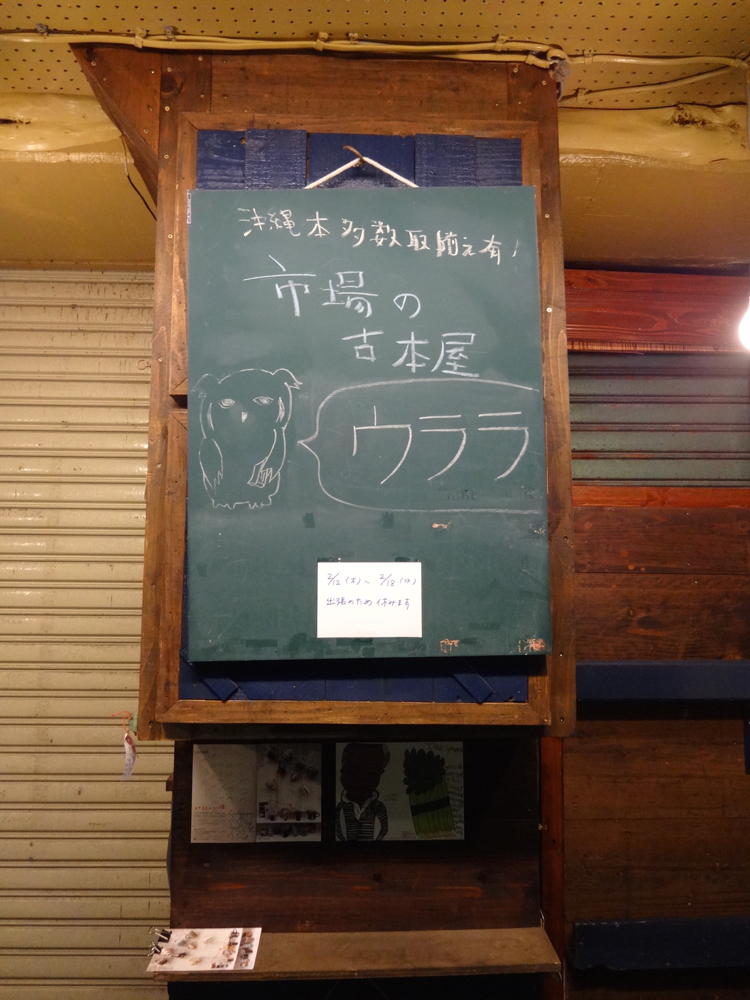 沖縄本多数取揃え有!
市場の
古本屋
ウララ
2/12(木)~2/18(水)
出張のため休みます